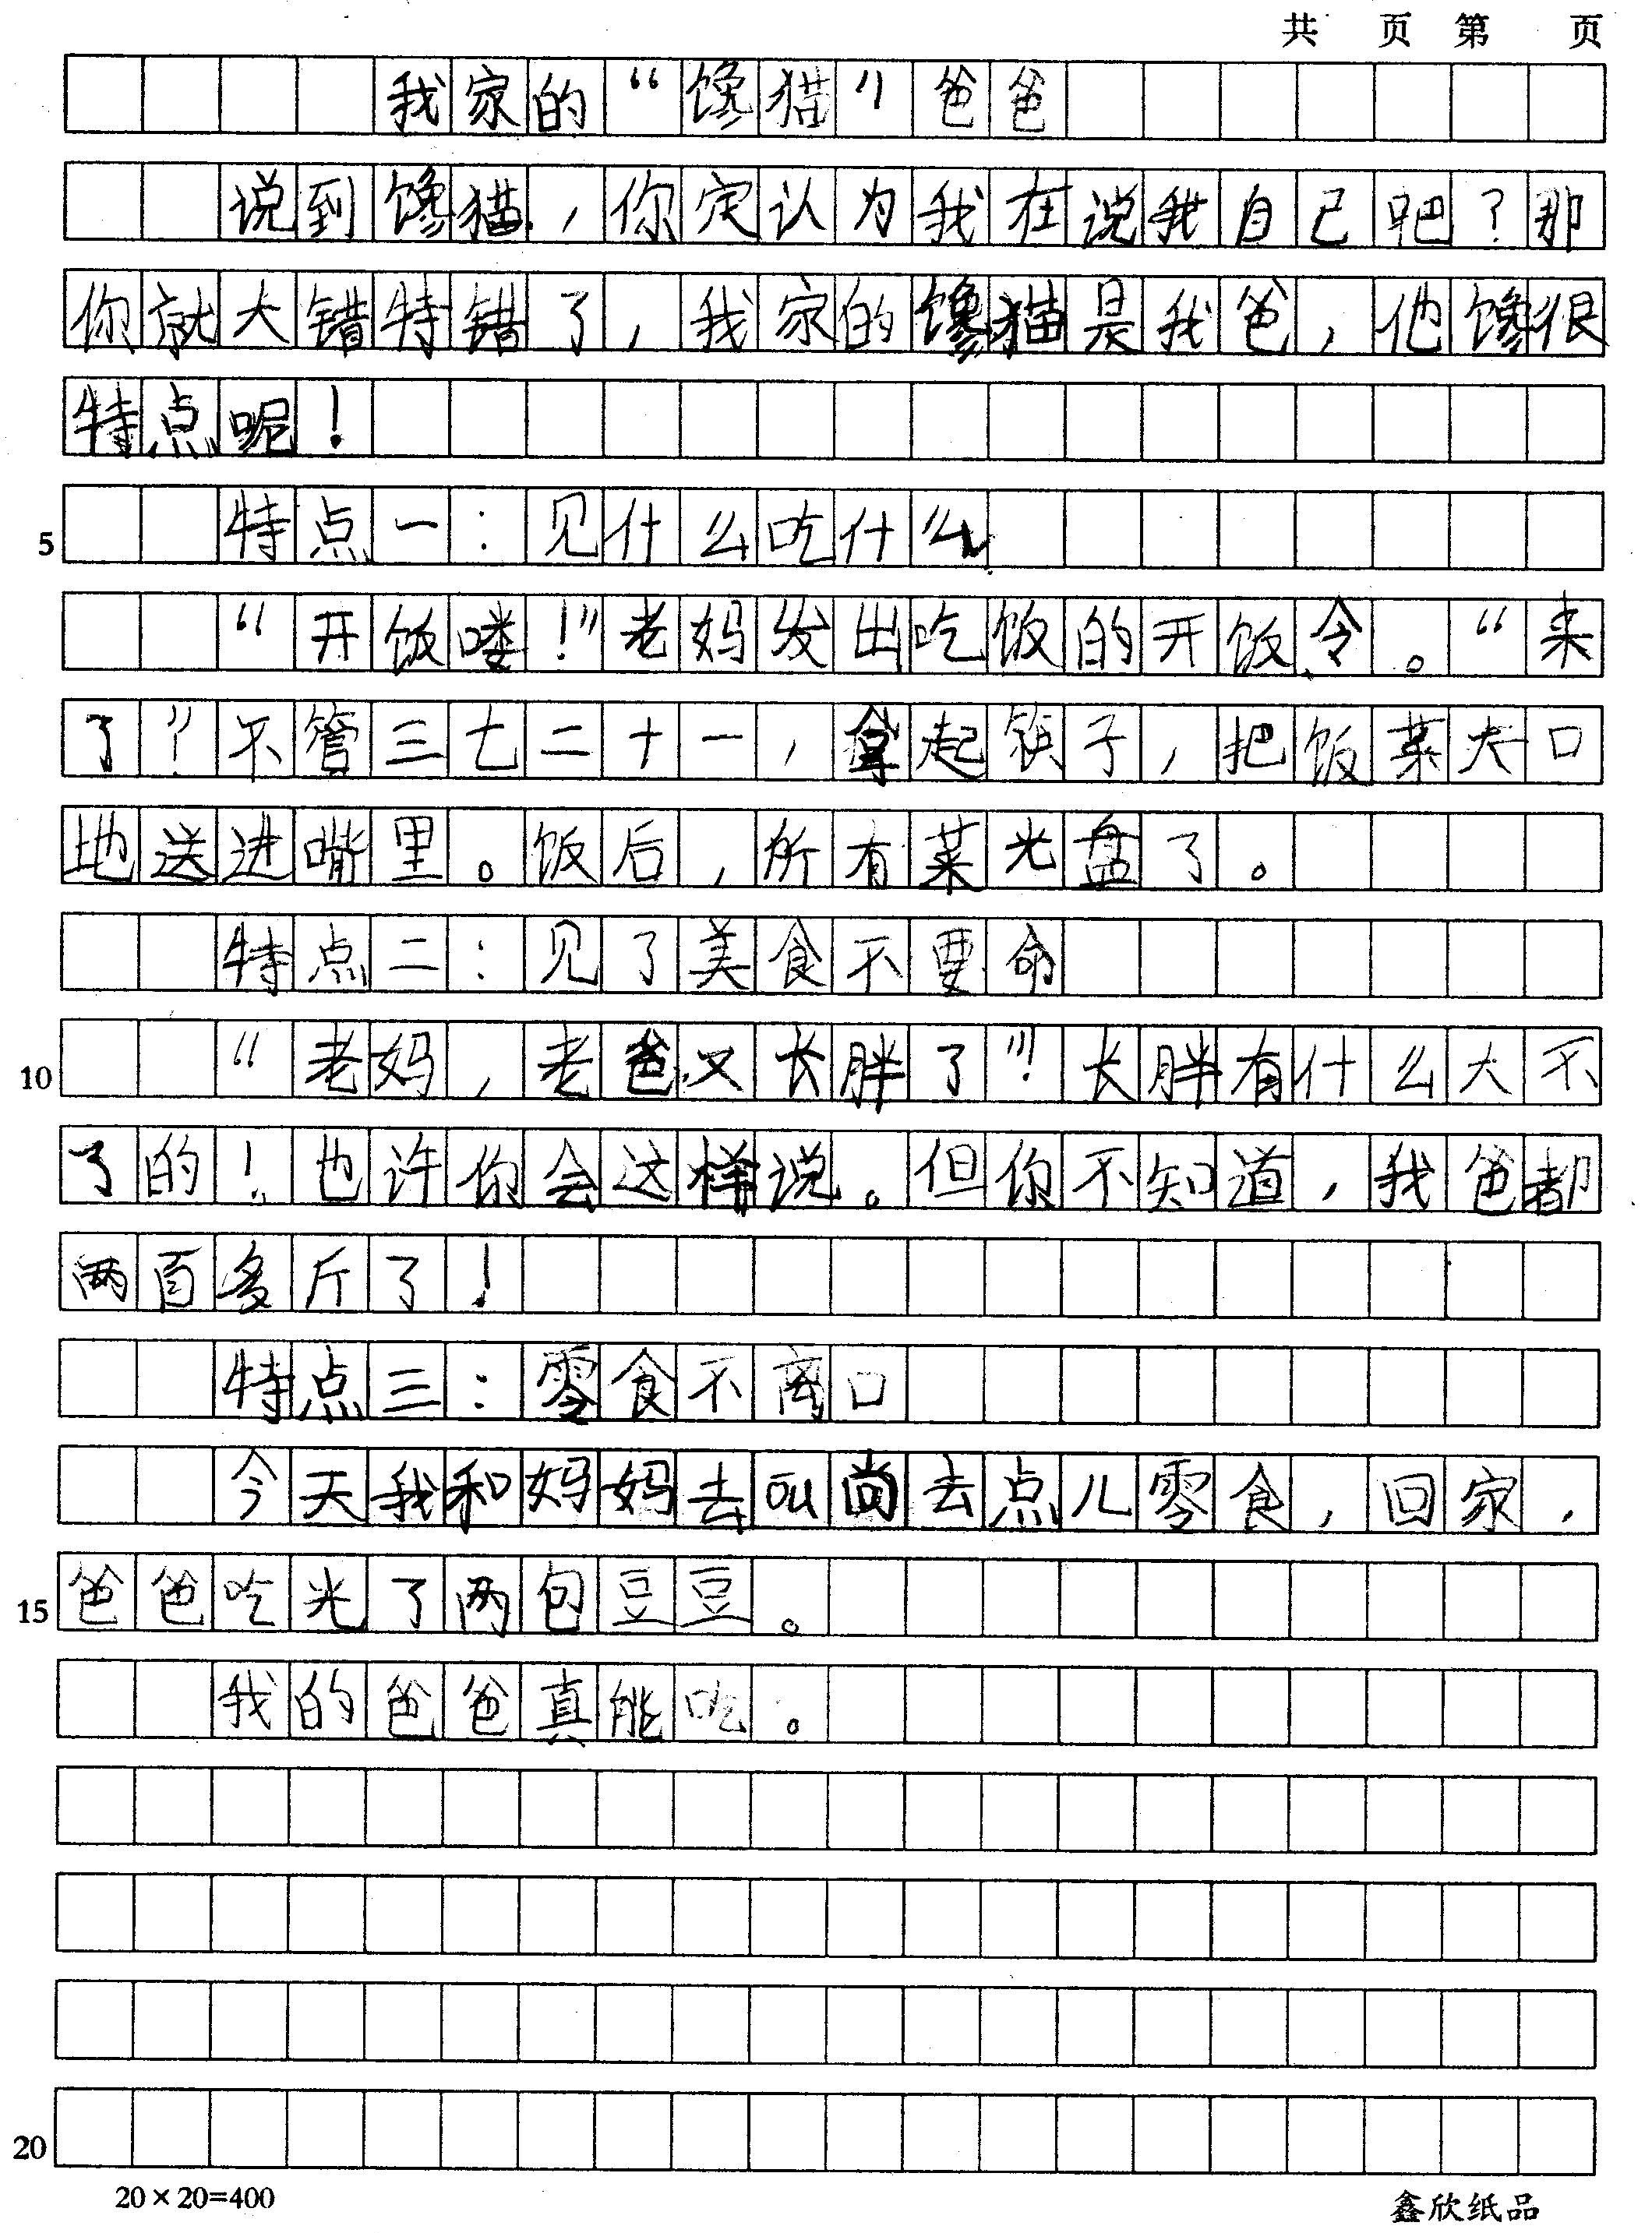 共 页 第 页
我家的“馋猫”爸爸
说到馋猫，你定认为我在说我自己吧？那
你就大错特错了，我家的馋猫是我爸，他馋很
特点呢！
5 特点一：见什么吃什么
“开饭喽！”老妈发出吃饭的开饭令。“来
了”？不管三七二十一，拿起筷子，把饭菜大口
地送进嘴里。饭后，所有菜光盘了。
特点二：见了美食不要命
10 “老妈，老爸又长胖了”！长胖有什么大不
了的！也许你会这样说。但你不知道，我爸都
两百多斤了！
特点三：零食不离口
今天我和妈妈去叫尚去点儿零食，回家，
15 爸爸吃光了两包豆豆。
我的爸爸真能吃。
20
20×20=400 鑫欣纸品